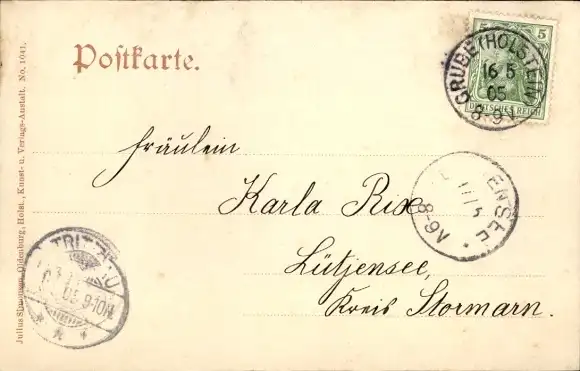 Postkarte.
5 5
DEUTSCHES REICH
GRUBE (HOLSTEIN)
16 5
05
8-9V
Fräulein
Karla Rixe
Lütjensee,
Kreis Stormarn.
ENSEE
17/5
8-9V
TRITTAU
05 9-10V
Julius Simonsen, Oldenburg, Holst., Kunst- u. Verlags-Anstalt. No. 1041.